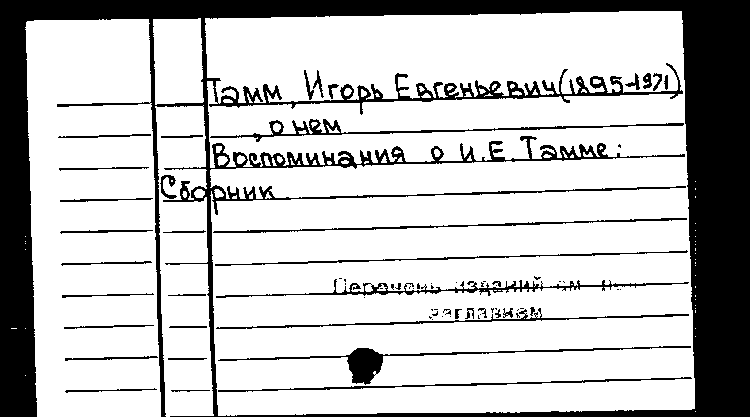 Тамм, Игорь Евгеньевич (1895-1971)
, о нем
Воспоминания о И.Е. Тамме:
Сборник
Перечень изданий см
заглавием